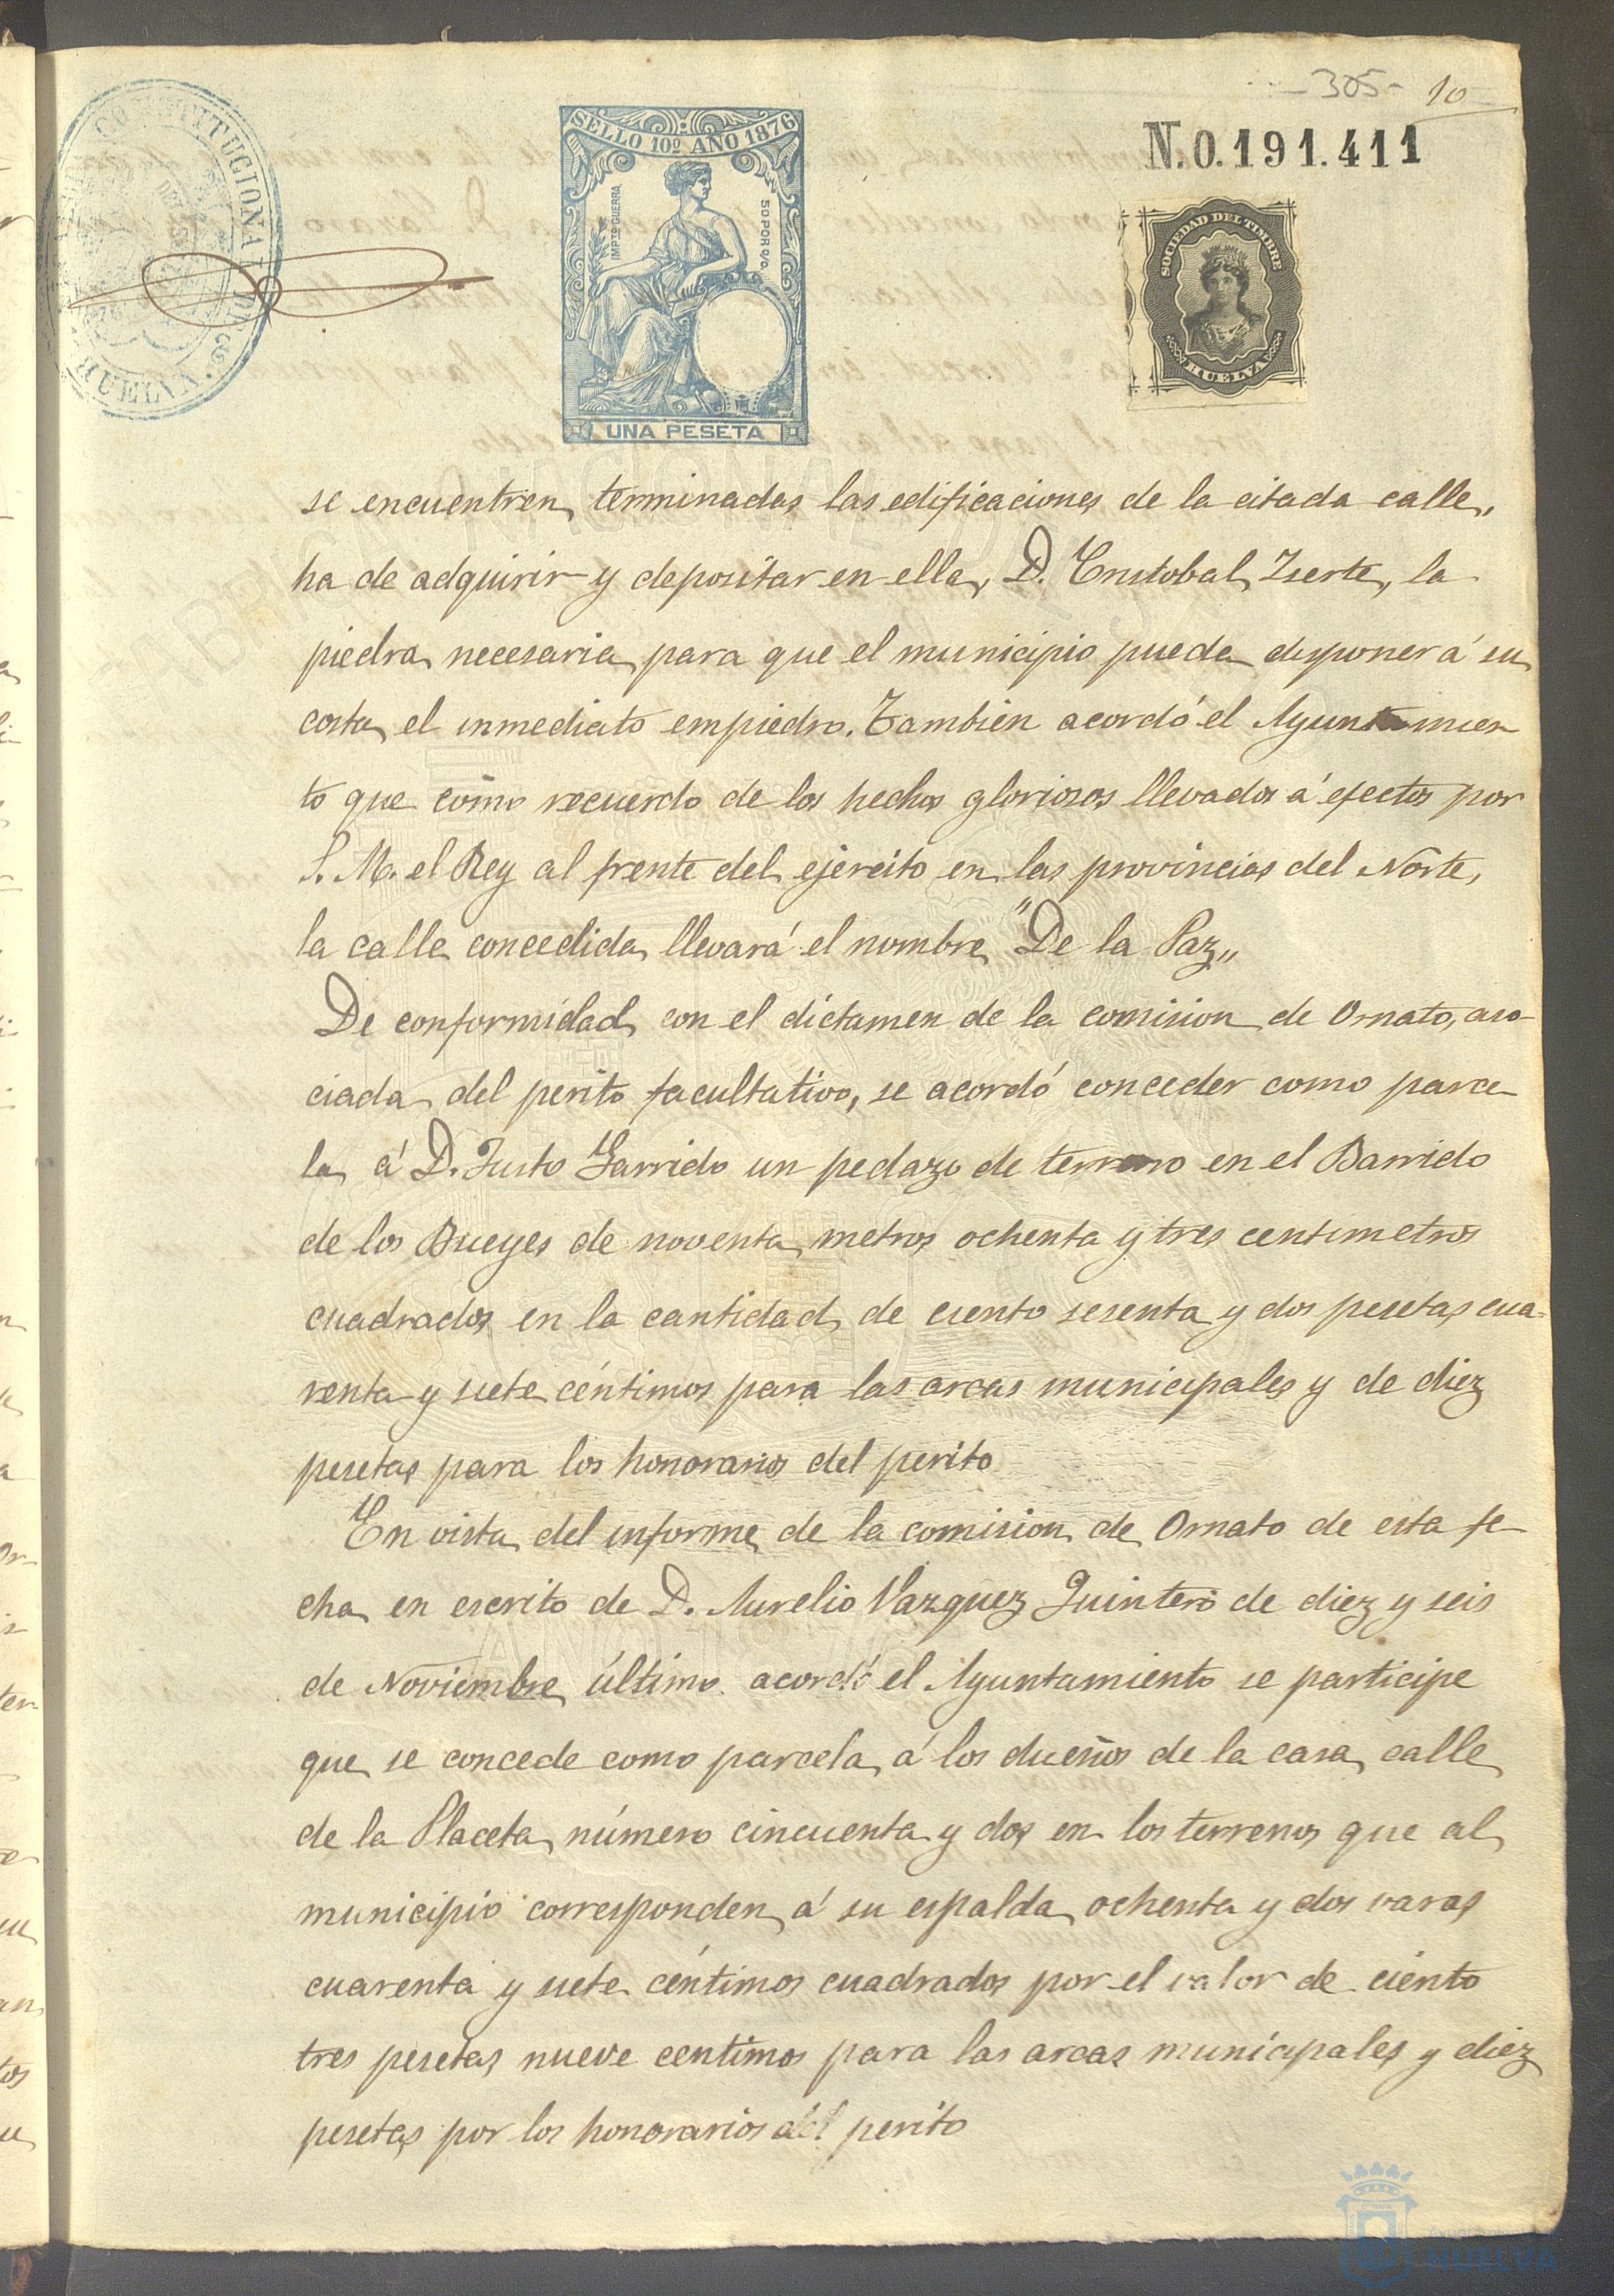 305- 10
N.0.191.411
CONSTITUCIONAL DE
HUELVA.
SELLO 10º AÑO 1876
IMPTO GUERRA
50 POR 0/0.
UNA PESETA
SOCIEDAD DEL TIMBRE
HUELVA
se encuentren terminadas las edificaciones de la citada calle,
ha de adquirir y depositar en ella, D. Cristobal Iserte, la
piedra necesaria para que el municipio pueda disponer á su
costa el inmediato empiedro. También acordó el Ayuntamien
to que como recuerdo de los hechos gloriosos llevados á efectos por
S. M. el Rey al frente del ejército en las provincias del Norte,
la calle concedida llevará el nombre "De la Paz„
De conformidad con el dictamen de la comision de Ornato, aso-
ciada del perito facultativo, se acordó conceder como parce
la á D. Justo Garrido un pedazo de terreno en el Barrido
de los Bueyes de noventa metros ochenta y tres centimetros
cuadrados en la cantidad de ciento sesenta y dos pesetas cua-
renta y siete céntimos para las arcas municipales y de diez
pesetas para los honorarios del perito
En vista del informe de la comision de Ornato de esta fe
cha en escrito de D. Aurelio Vazquez Quintero de diez y seis
de Noviembre último acordó el Ayuntamiento se participe
que se concede como parcela á los dueños de la casa calle
de la Placeta número cincuenta y dos en los terrenos que al
municipio corresponden á su espalda ochenta y dos varas
cuarenta y siete céntimos cuadrados por el valor de ciento
tres pesetas nueve centimos para las arcas municipales y diez
pesetas por los honorarios del perito
HUELVA